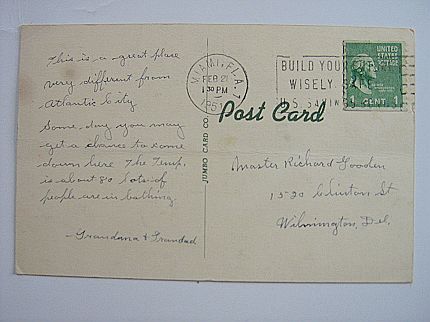 This is a great place
very different from
Atlantic City.
Some day you may
get a chance to come
down here The Temp.
is about 80 lots of
people are in bathing.
-Grandma & Grandad
JUMBO CARD CO.
MIAMI, FLA. 7
FEB 21
1 30 PM
1951
BUILD YOUR
WISELY
U.S. SAVIN
1 CENT 1
Post Card
Master Richard Gooden
1520 Clinton St
Wilmington, Del.